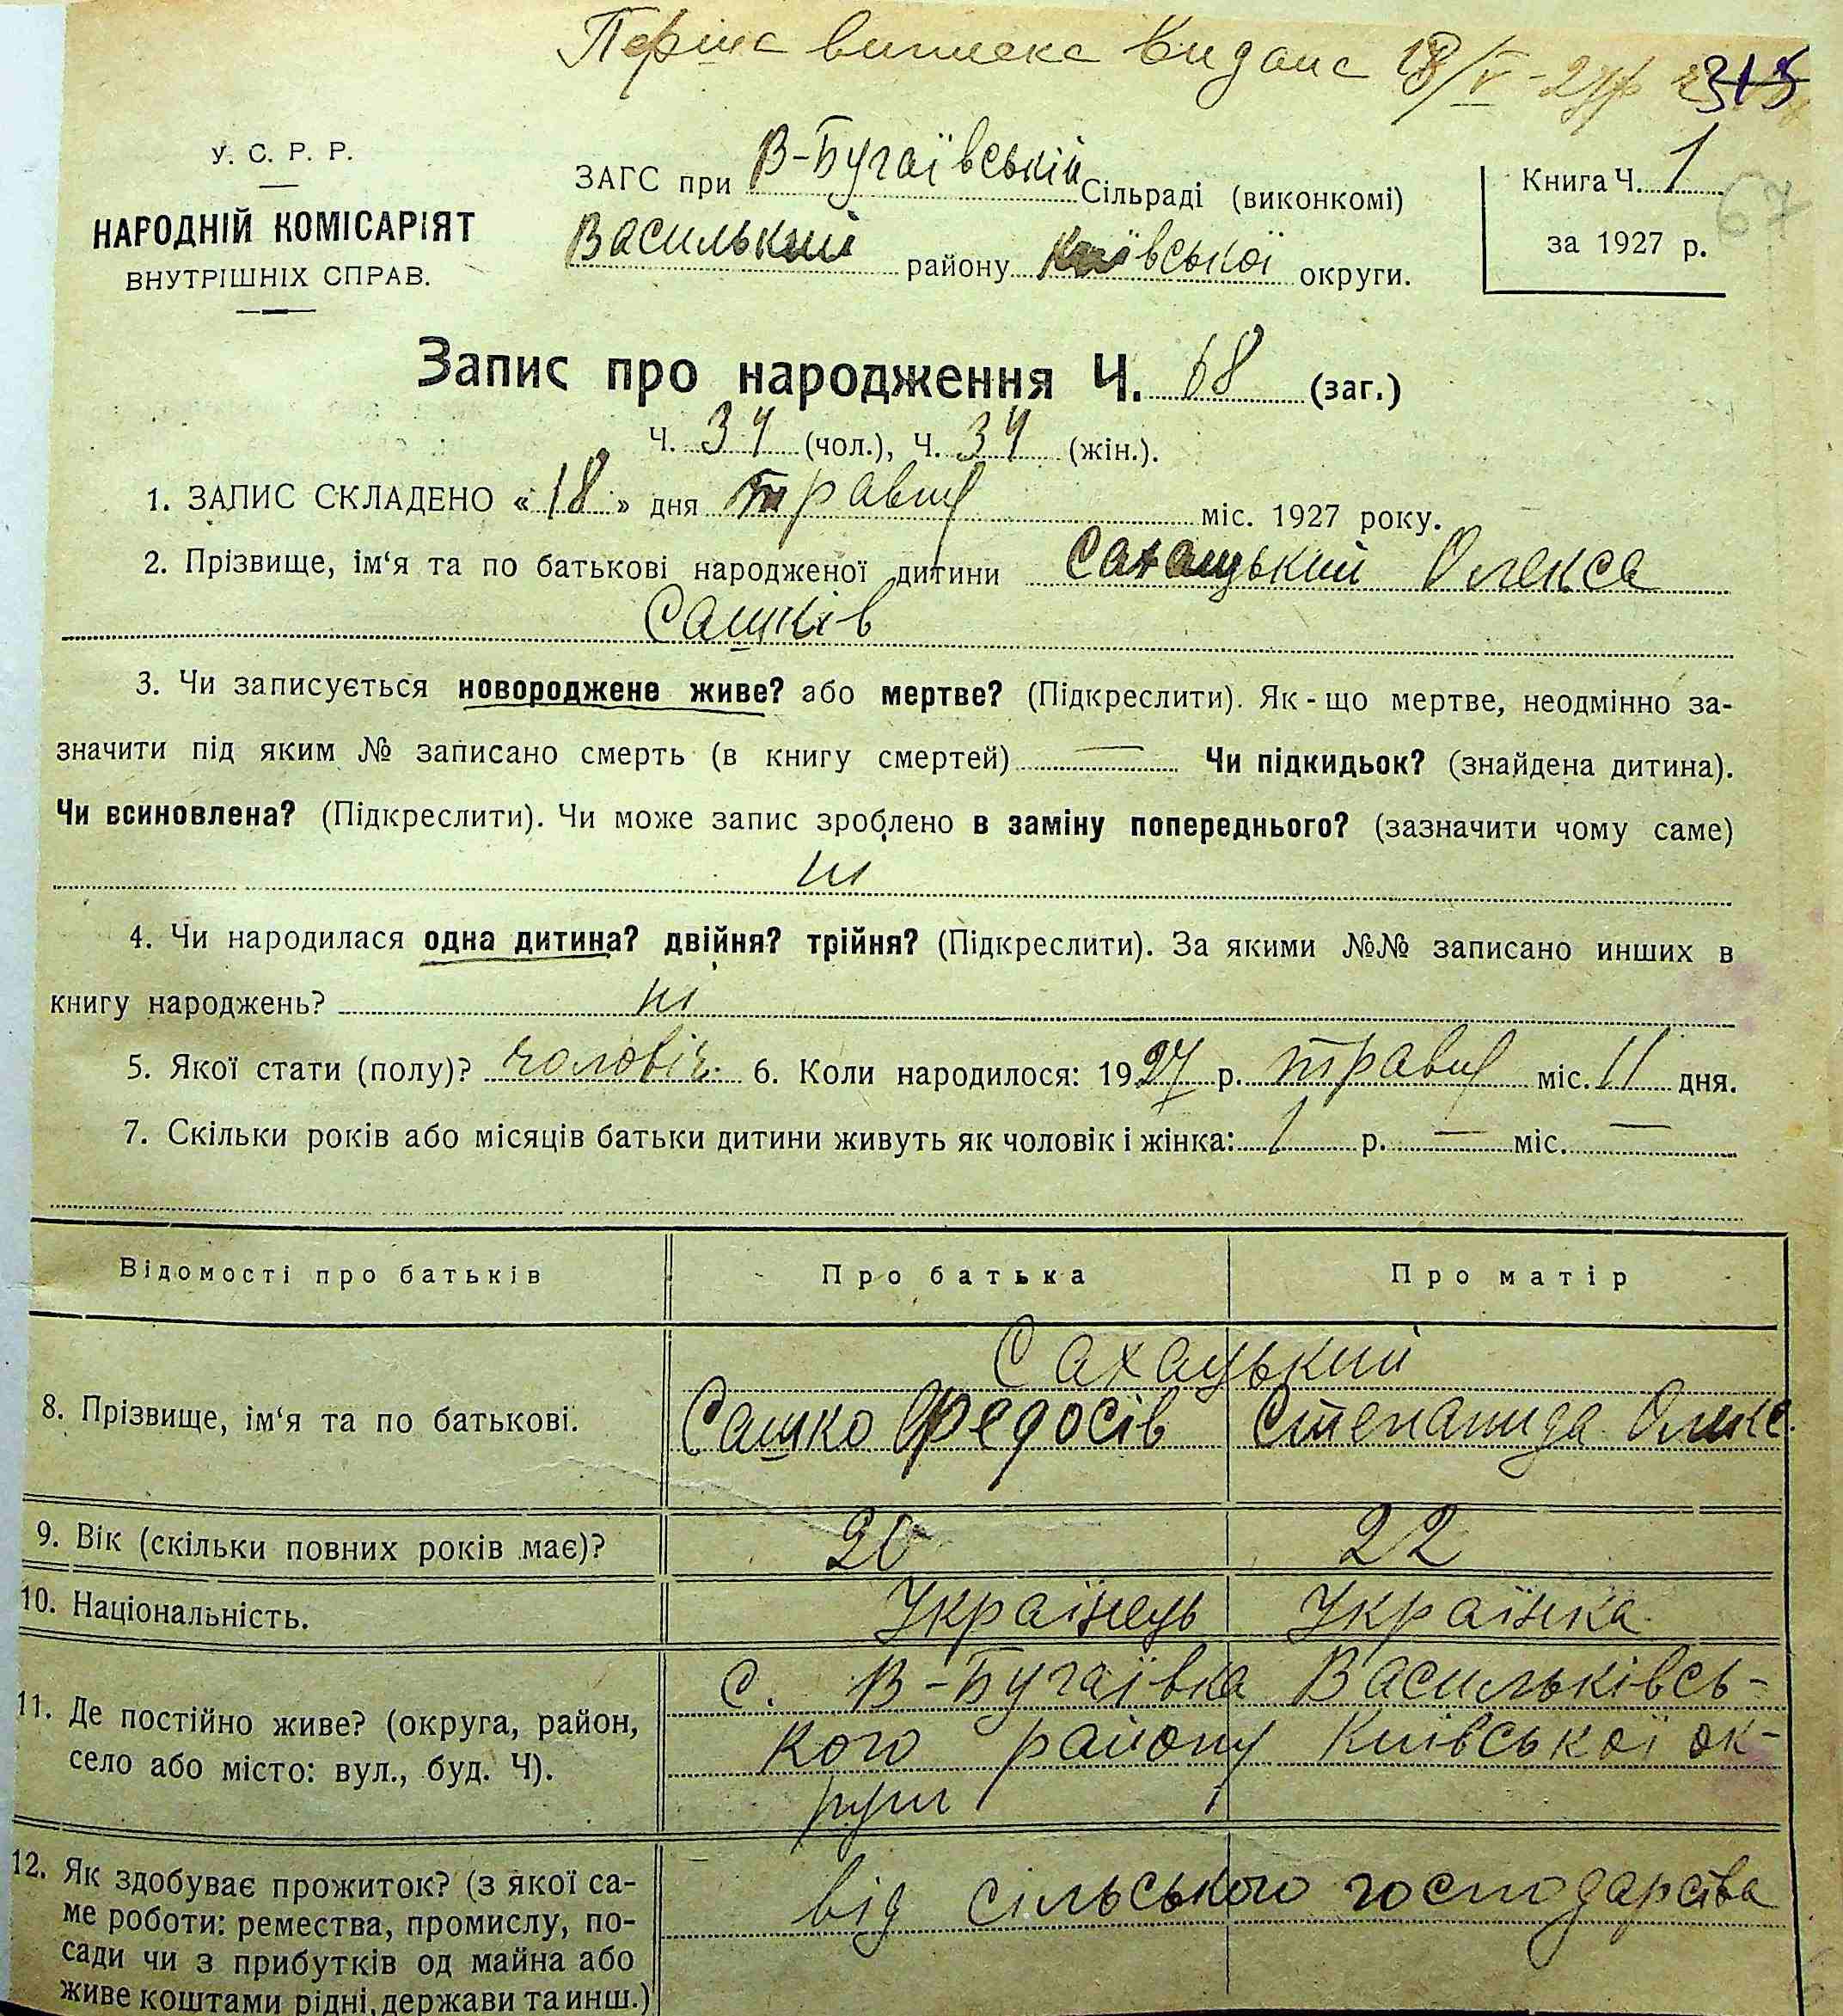 Перша виписка видана 18/V-27р
315
У. С. Р. Р.
НАРОДНІЙ КОМІСАРІЯТ
ВНУТРІШНІХ СПРАВ.
ЗАГС при В-Бугаївській Сільраді (виконкомі)
Васильків району Київської округи.
Книга Ч. 1
за 1927 р.
67
Запис про народження Ч. 68 (заг.)
Ч. 34 (чол.), Ч. 34 (жін.).
1. ЗАПИС СКЛАДЕНО «18» дня травня міс. 1927 року.
2. Прізвище, ім‘я та по батькові народженої дитини Сахацький Олекса
Сашків
3. Чи записується новороджене живе? або мертве? (Підкреслити). Як-що мертве, неодмінно за-
значити під яким № записано смерть (в книгу смертей) — Чи підкидьок? (знайдена дитина).
Чи всиновлена? (Підкреслити). Чи може запис зроблено в заміну попереднього? (зазначити чому саме)
ні
4. Чи народилася одна дитина? двійня? трійня? (Підкреслити). За якими №№ записано инших в
книгу народжень? ні
5. Якої стати (полу)? чоловіч. 6. Коли народилося: 1927 р. травня міс. 11 дня.
7. Скільки років або місяців батьки дитини живуть як чоловік і жінка: 1 р. — міс. —
Відомості про батьків Про батька Про матір
Сахацький
8. Прізвище, ім‘я та по батькові. Сашко Федосів Степанида Олекс.
9. Вік (скільки повних років має)? 20 22
10. Національність. Українець Українка
с. В-Бугаївка Васильківсь-
11. Де постійно живе? (округа, район, кого району Київської ок-
село або місто: вул., буд. Ч). руги
12. Як здобуває прожиток? (з якої са- від сільського господарства
ме роботи: ремества, промислу, по-
сади чи з прибутків од майна або
живе коштами рідні, держави та инш.)